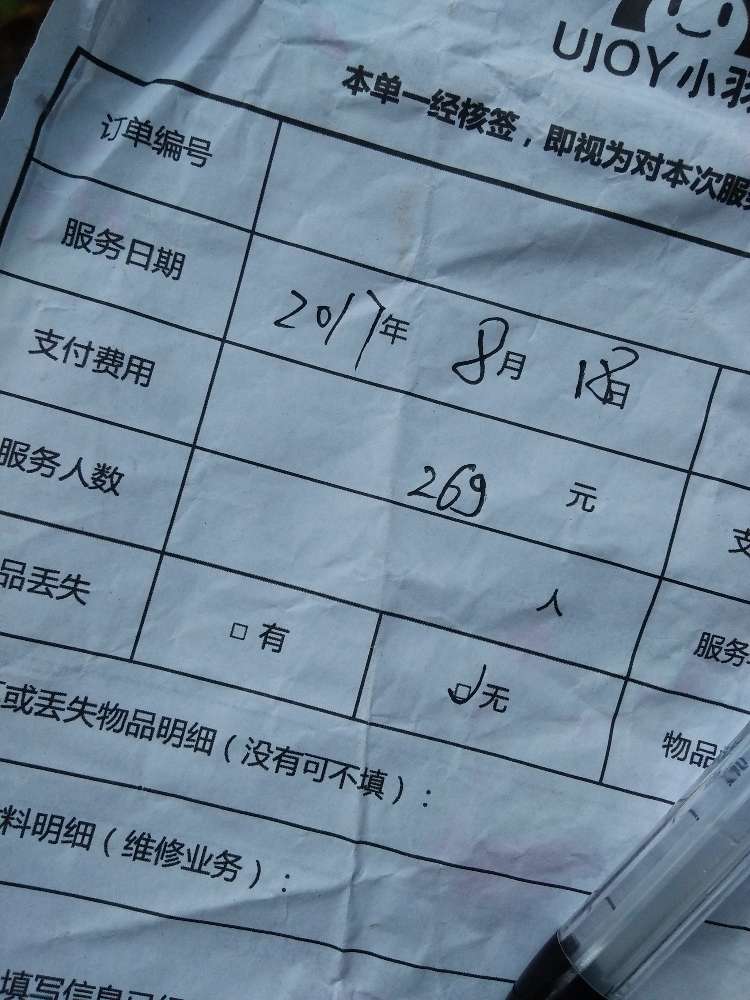 UJOY小羽
本单一经核签，即视为对本次服务
订单编号
服务日期 2017年 8月 18日
支付费用 269 元
服务人数 人 服务
品丢失 □ 有 ☑ 无 物品
或丢失物品明细（没有可不填）：
料明细（维修业务）：
填写信息已经